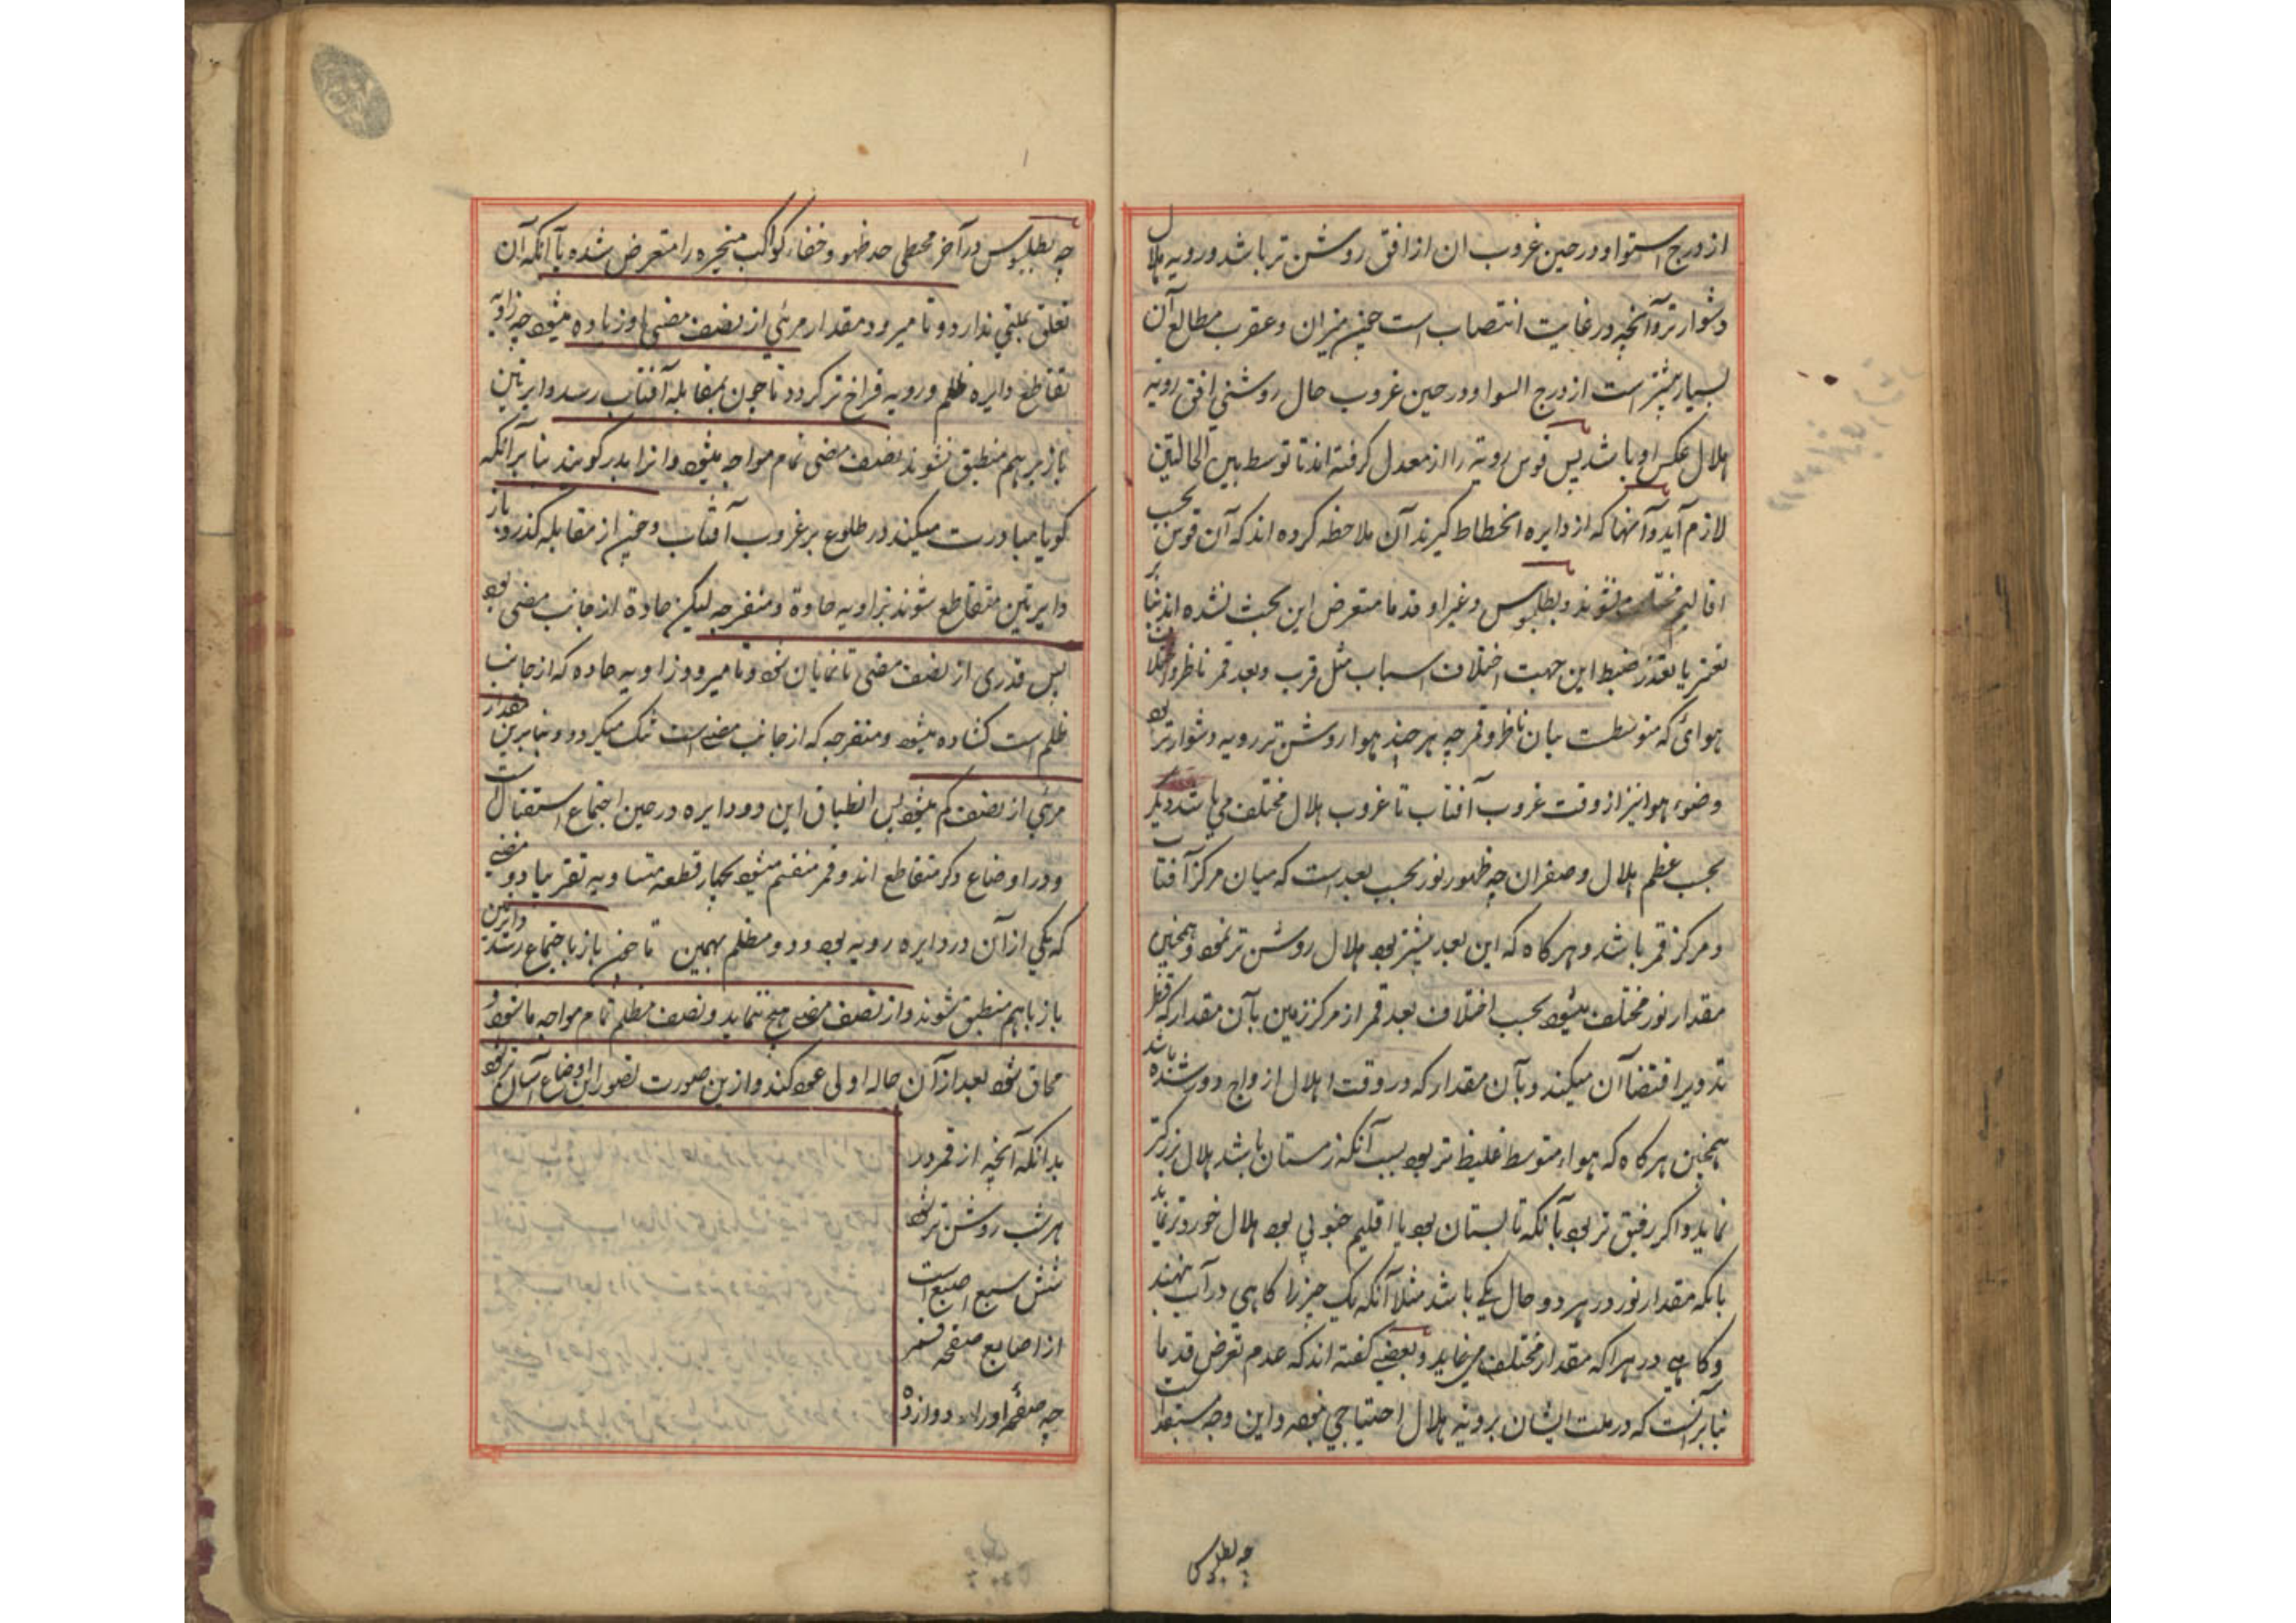 از درج استوا و در حین غروب ان از افق روشن تر باشد و رویه هلال
دشوارتر و آنچه در غایت انتصاب است چون میزان و عقرب مطالع آن
بسیار بیشتر است از درج السوا و در حین غروب حال روشنی افق و رویة
هلال عکس او باشد پس قوس رویة را از معدل گرفته اند تا توسط بین الحالتین
لازم آید و آنها که از دایره انحطاط گیرند آن ملاحظه کرده اند که آن قوس بحسب
اقالیم مختلف میشوند و بطلمیوس و غیر او قدما متعرض این بحث نشده اند بنا بر
تعسر یا تعذر ضبط این جهت اختلاف اسباب مثل قرب و بعد قمر ناظر و اختلاف
هوائی که متوسطست میان ناظر و قمر چه هر چند هوا روشن تر رویه دشوارتر بود
وضوء هوا نیز از وقت غروب آفتاب تا غروب هلال مختلف می باشد دیگر
بحسب عظم هلال و صغر ان چه ظهور نور بحسب بعد است که میان مرکز آفتاب
و مرکز قمر باشد و هر کاه که این بعد بیشتر بود هلال روشن تر نمود و همچنین
مقدار نور مختلف میشود بحسب اختلاف بعد قمر از مرکز زمین بآن مقدار که قطر
تدویر اقتضا آن میکند و بآن مقدار که در وقت اهلال از اوج دور شده باشد
همچنین هر کاه که هواء متوسط غلیظ تر بود بسبب آنکه زمستان باشد هلال بزرکتر
نماید و اکر رقیق تر بود بآنکه تابستان بود یا اقلیم جنوبی بود هلال خوردتر نماید
با آنکه مقدار نور در هر دو حال یکی باشد مثلا آنکه یک چیز را کاهی در آب نهند
و کاهی در هوا که مقدار مختلف می نماید و بعضی گفته اند که عدم تعرض قدما
بنابرآنست که در ملت ایشان برویة هلال احتیاجی نبوده و این وجه مستبعد است
چه بطلمیوس
چه بطلمیوس در آخر مجسطی حد ظهور و خفاء کواکب متحیره را متعرض شده با آنکه آن
تعلق بملتی ندارد و تا میرود مقدار مرئی از نصف مضی او زیاده میشود چه زاویه
تقاطع دایره ظلم و رویه فراخ تر کردد تا چون بمقابله آفتاب رسد دایرتین
باز بر هم منطبق شوند نصف مضی تمام مواجه میشود و انرا بدر کویند بنا بر انکه
کویا مبادرت میکند در طلوع بر غروب آفتاب و چون از مقابله گذرد باز
دایرتین متقاطع شوند بزاویه حادة و منفرجه لیکن حادة از جانب مضی بود
پس قدری از نصف مضی تا نمایان نبود و تا میرود زاویه حاده که از جانب
ظلم است کشاده میشود و منفرجه که از جانب مضی است تنک میکردد و بنابرین مقدار
مرئی از نصف کم میشود پس انطباق این دو دایره در حین اجتماع و استقبال است
و در اوضاع دکر متقاطع اند و قمر منقسم میشود بچهار قطعه متساویه تقریبا دو مضی
که یکی از آن در دایره رویه بود و دو مظلم بهمین تا چون باز باجتماع رسند دایرتین
باز باهم منطبق شوند و از نصف مضی هیچ ننماید و نصف مظلم تمام مواجه ما شود و
محاق شود بعد از آن حاله اولی عود کند و ازین صورت تصور این اوضاع آسان تر شود
بدانکه آنچه از قمر در
هر شب روشن تر شود
شش سبع اصبع است
از اصابع صفحه قمر
چه صفحه او را دوازده